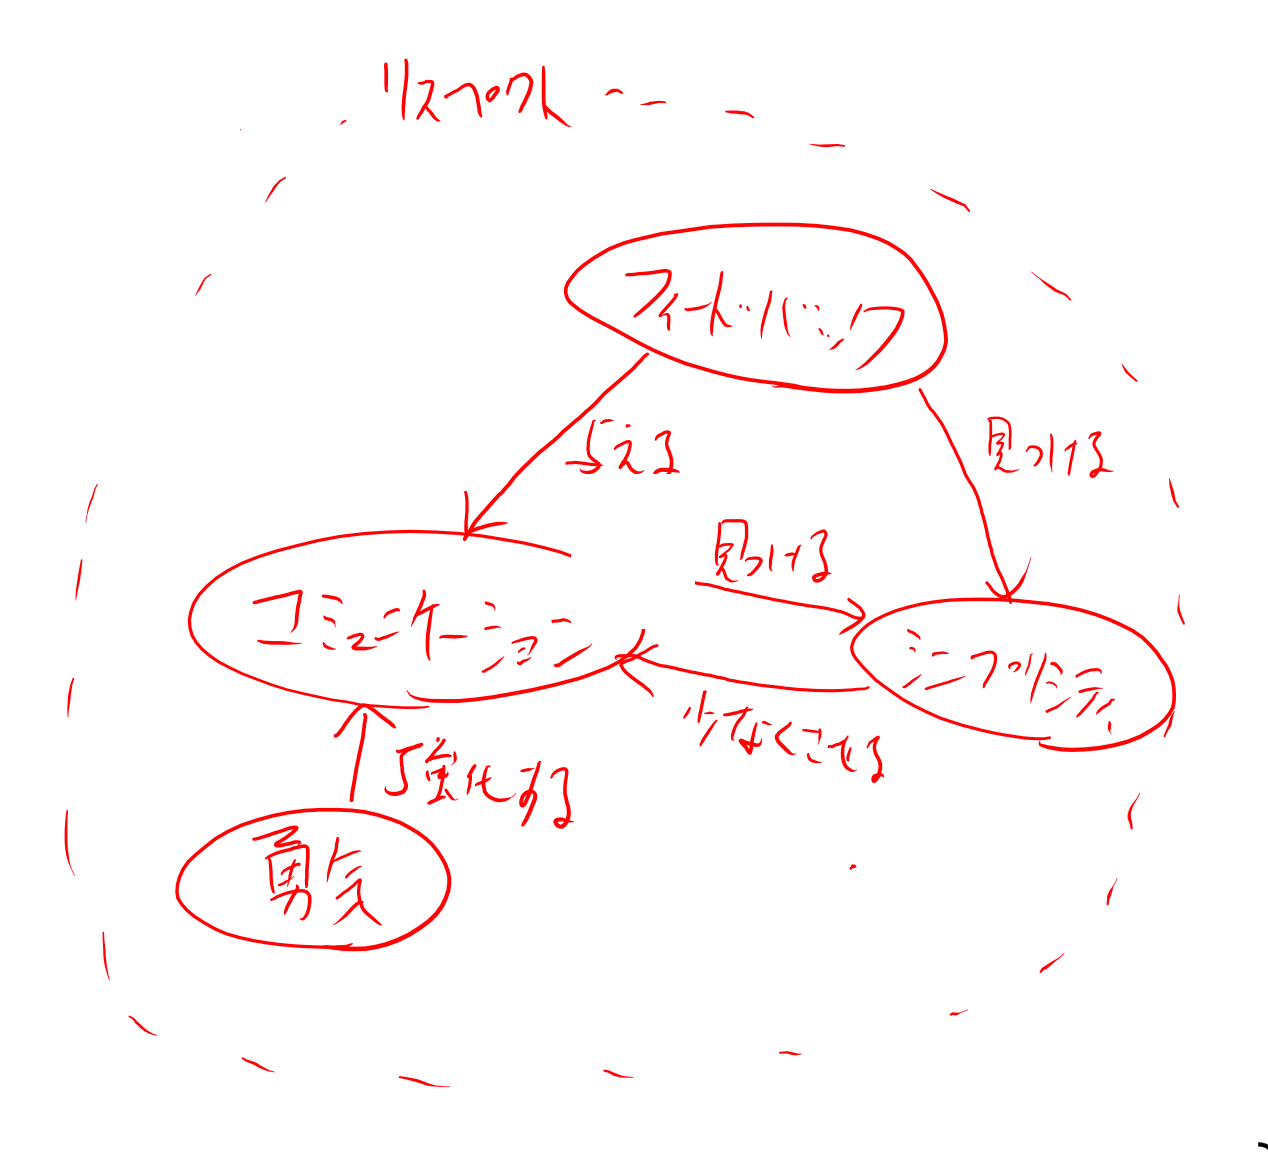 リスペクト
フィードバック
与える
見つける
見つける
コミュニケーション
シンプリシティ
少なくさせる
強化する
勇気